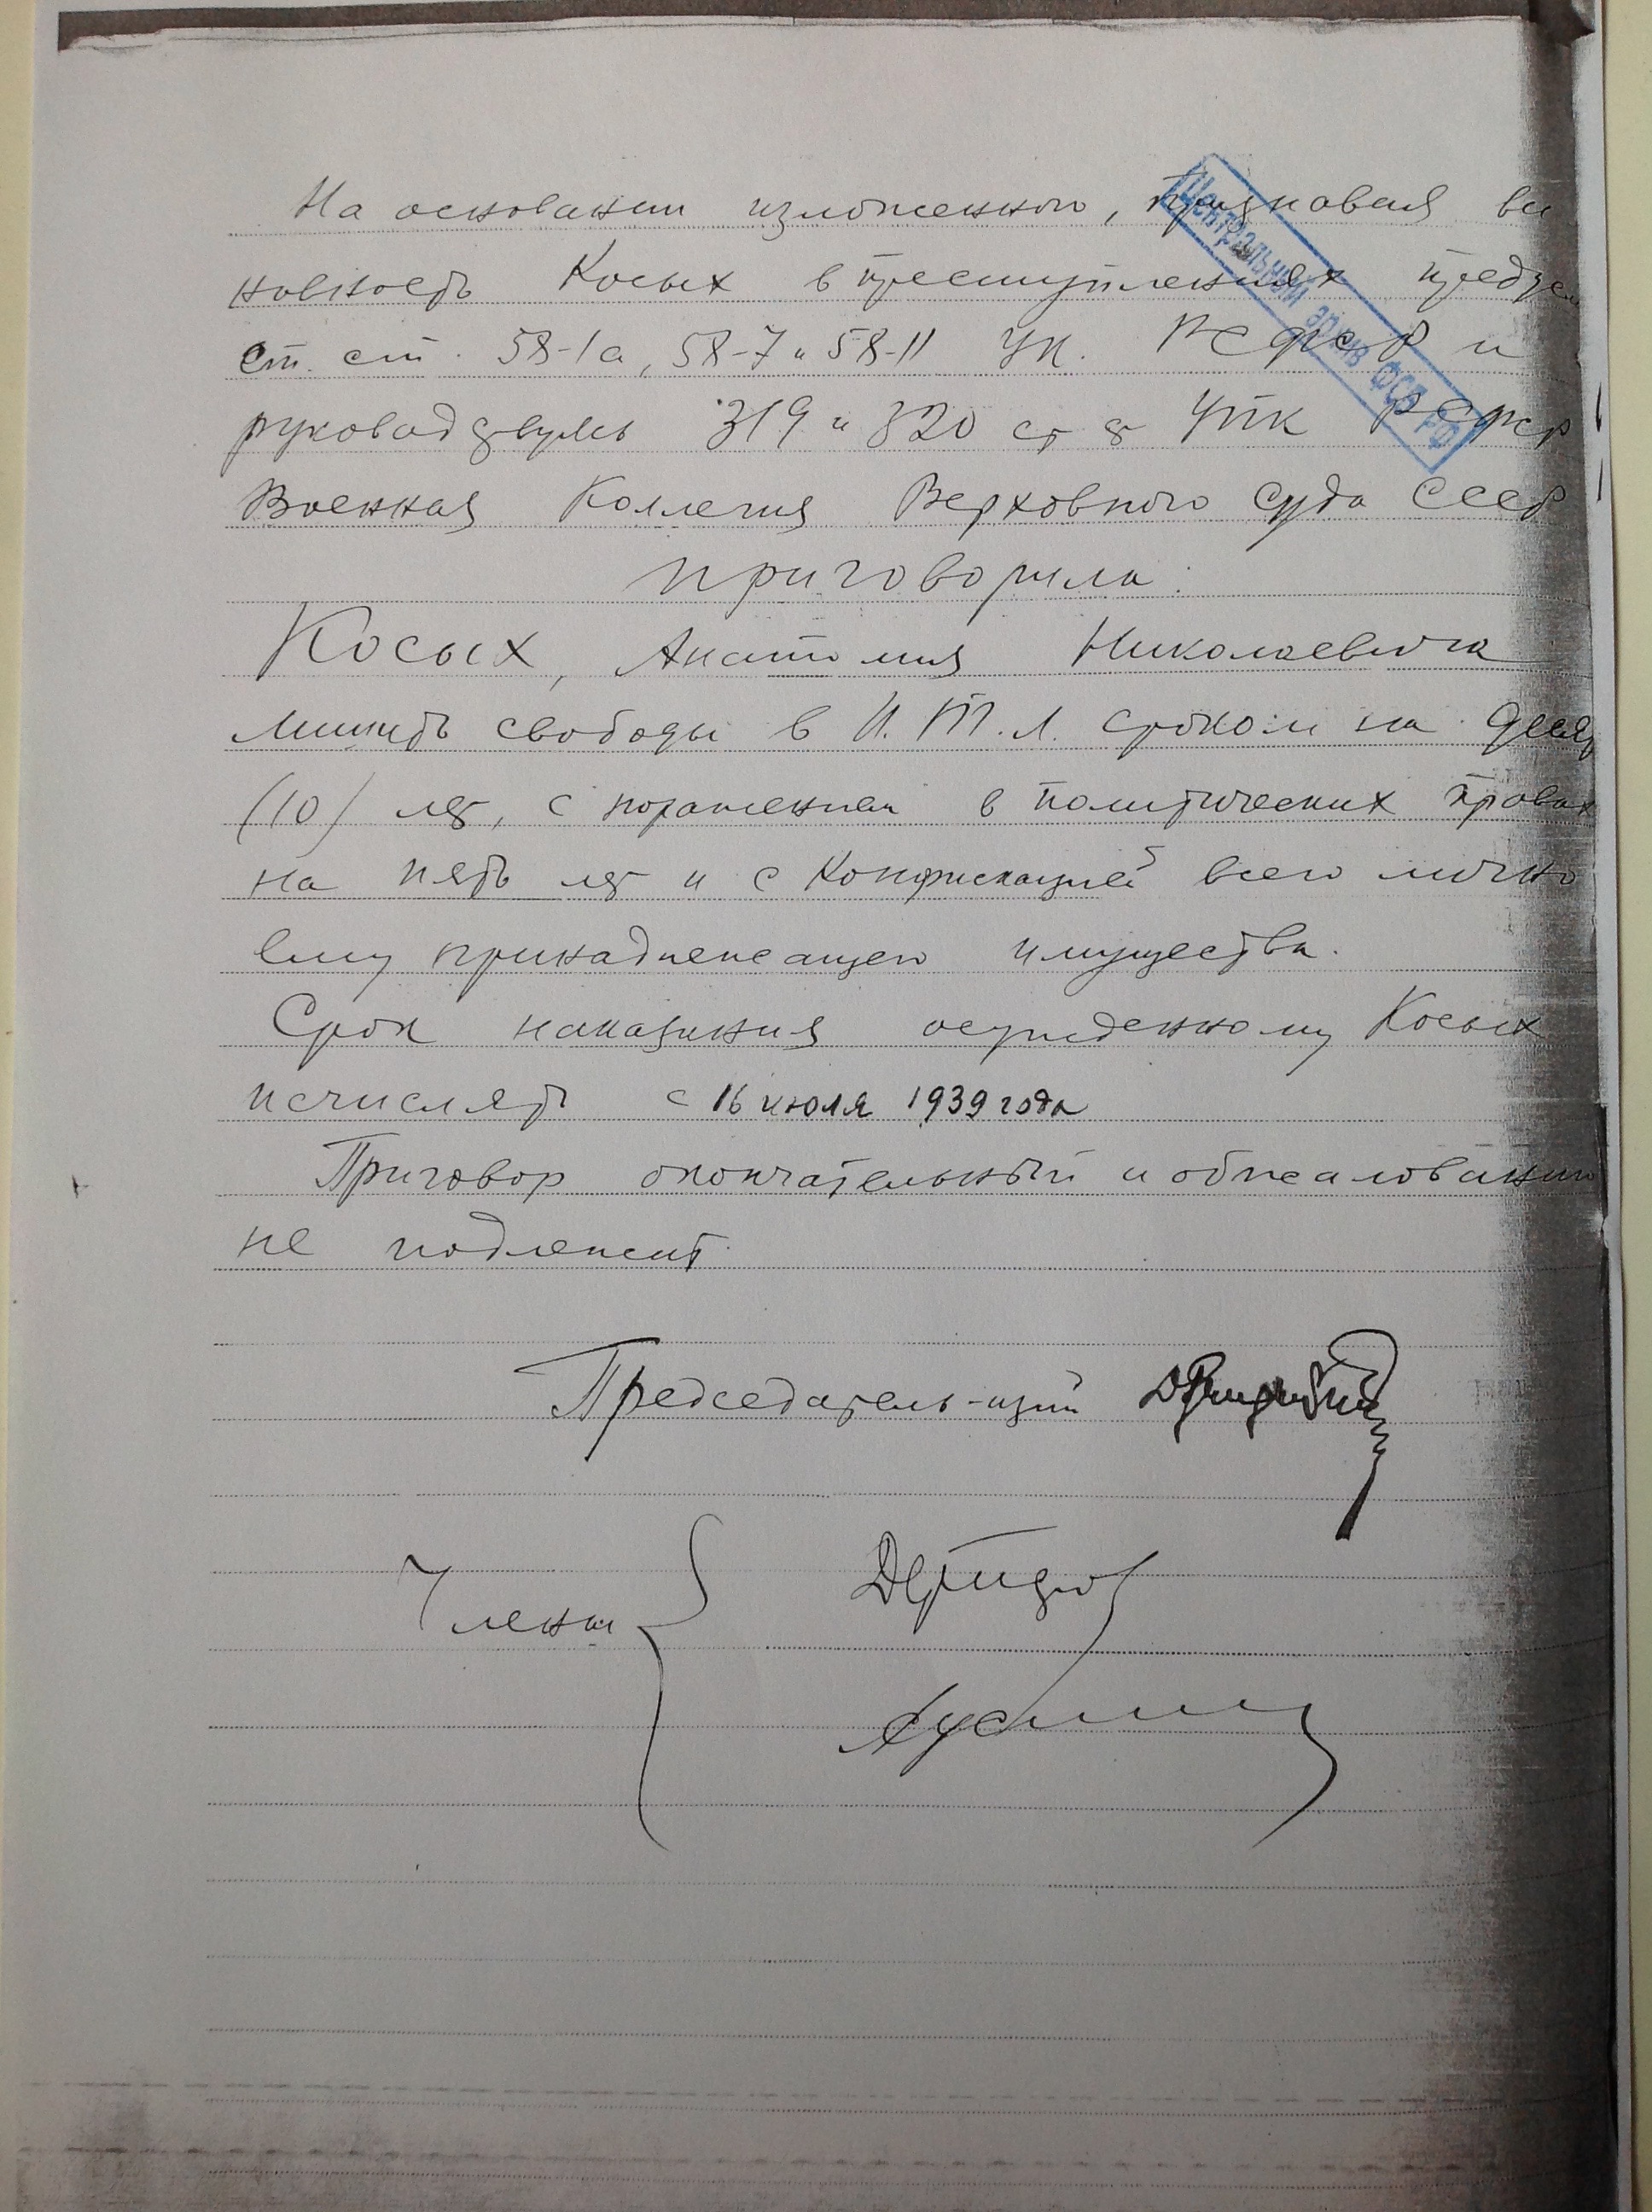 На основании изложенного, признавая ви
новность Косых в преступлениях предусм
ст. ст. 58-1а, 58-7 и 58-11 УК. РСФСР и
руководствуясь 319 и 320 ст ст УПК РСФСР
Военная Коллегия Верховного Суда СССР
приговорила:
Косых, Анатолия Николаевича
лишить свободы в И.Т.Л. сроком на десять
(10) лет, с поражением в политических правах
на пять лет и с конфискацией всего лично
ему принадлежащего имущества.
Срок наказания осужденному Косых
исчислять с 16 июля 1939 года
Приговор окончательный и обжалованию
не подлежит.
Председатель-щий
Члены
Центральный архив ФСБ РФ